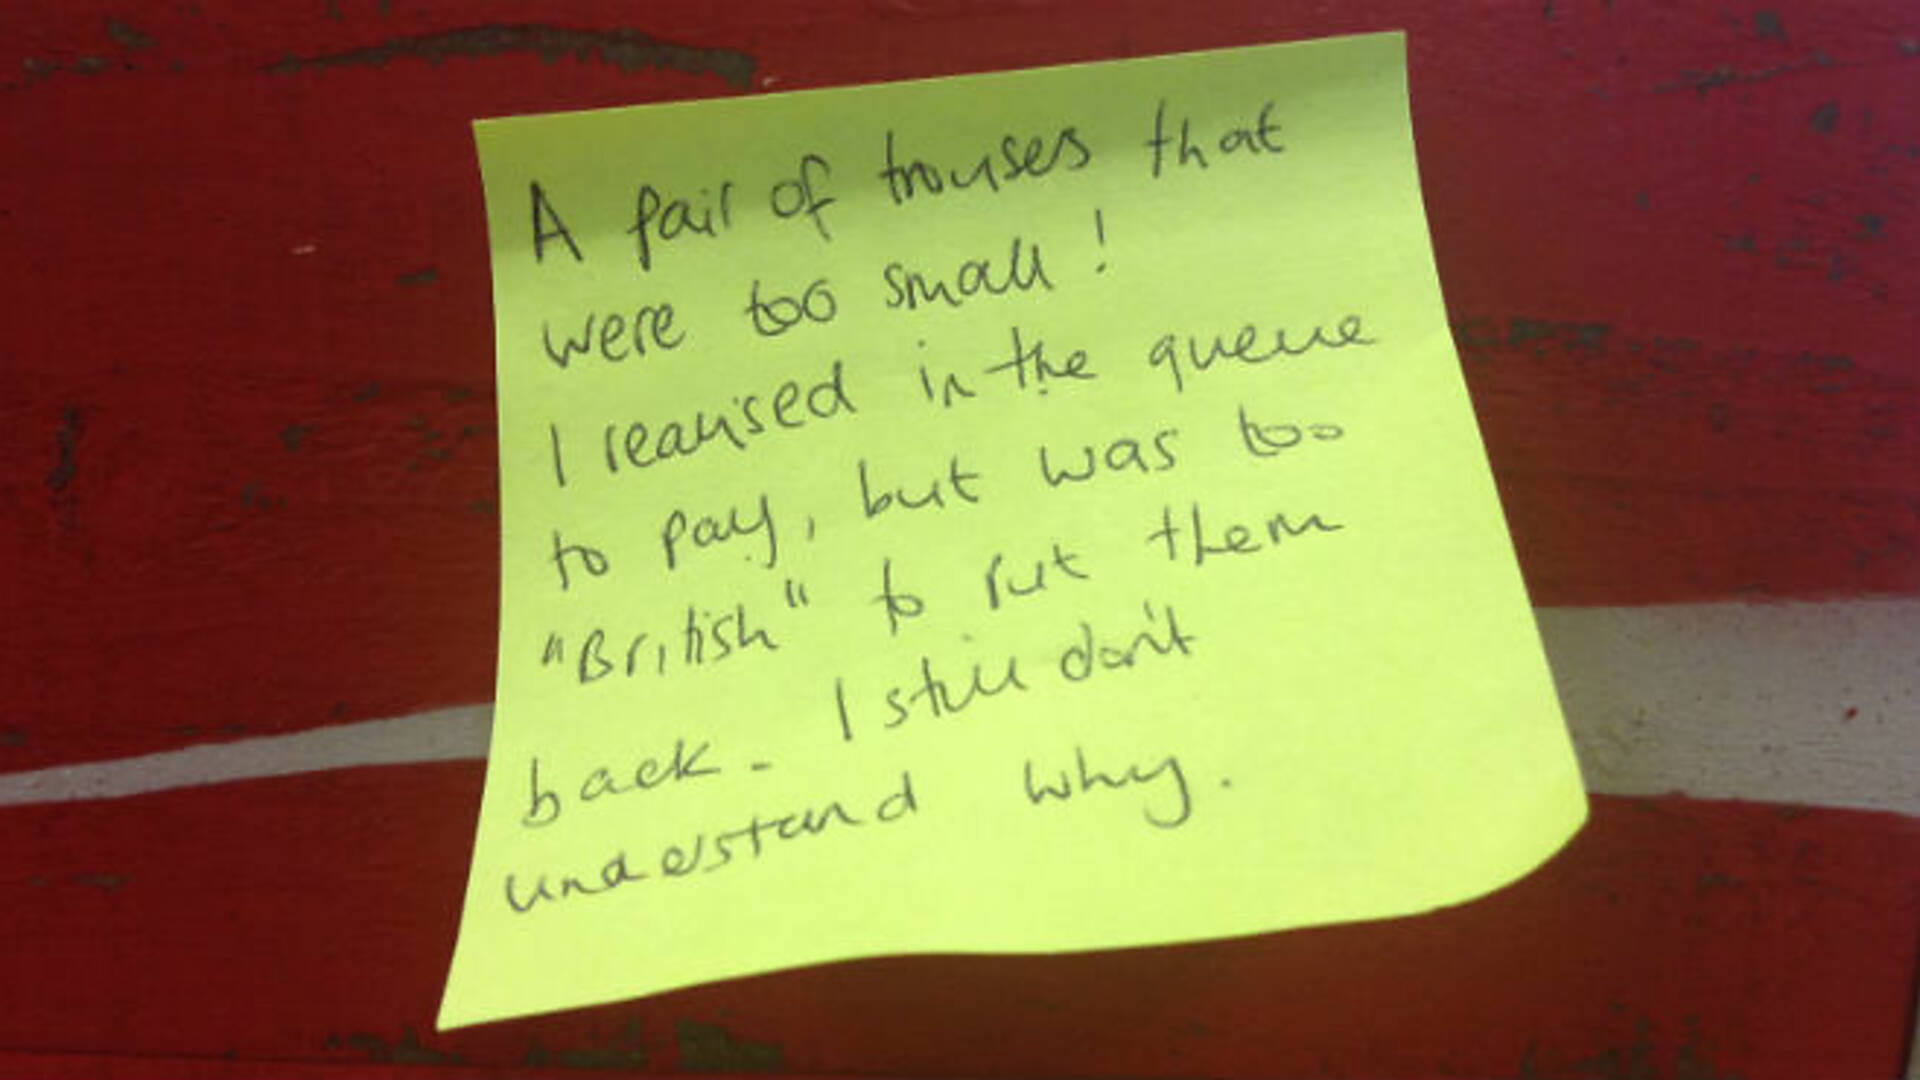 A pair of trouses that
were too small!
I realised in the queue
to pay, but was too
"British" to put them
back. I still don't
understand why.